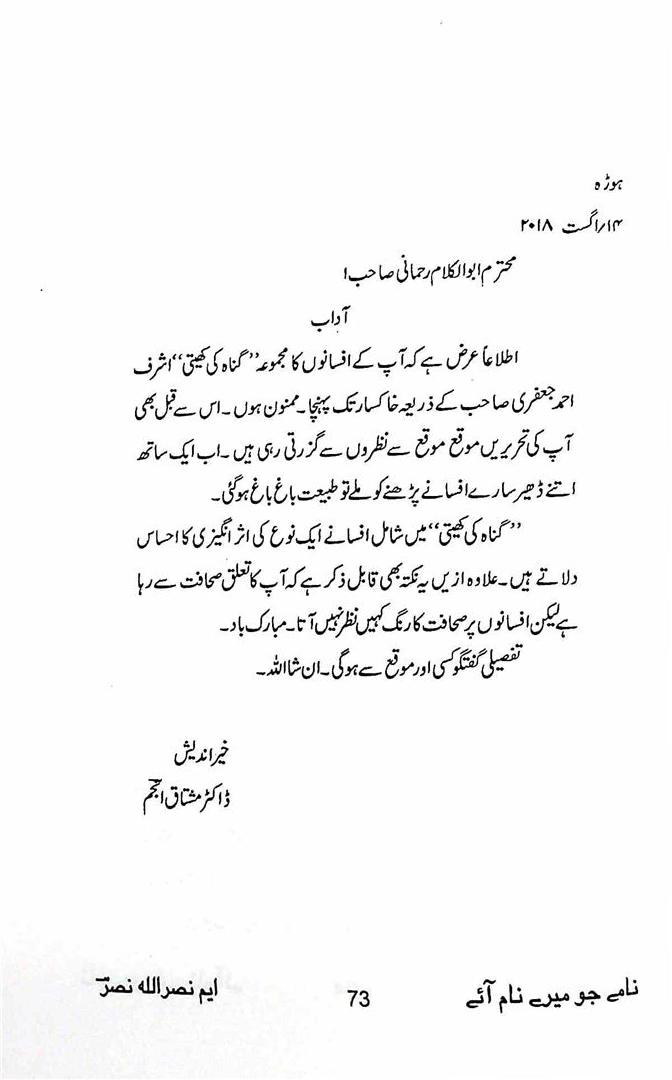 ہوڑہ
۱۴/اگست ۲۰۱۸
محترم ابوالکلام رحمانی صاحب!
آداب
اطلاعاً عرض ہے کہ آپ کے افسانوں کا مجموعہ ”گناہ کی کھیتی“ اشرف
احمد جعفری صاحب کے ذریعہ خاکسار تک پہنچا۔ ممنون ہوں۔ اس سے قبل بھی
آپ کی تحریریں موقع موقع سے نظروں سے گزرتی رہی ہیں۔ اب ایک ساتھ
اتنے ڈھیر سارے افسانے پڑھنے کو ملے تو طبیعت باغ باغ ہوگئی۔
”گناہ کی کھیتی“ میں شامل افسانے ایک نوع کی اثر انگیزی کا احساس
دلاتے ہیں۔ علاوہ ازیں یہ نکتہ بھی قابل ذکر ہے کہ آپ کا تعلق صحافت سے رہا
ہے لیکن افسانوں پر صحافت کا رنگ کہیں نظر نہیں آتا۔ مبارک باد۔
تفصیلی گفتگو کسی اور موقع سے ہوگی۔ ان شا اللہ۔
خیر اندیش
ڈاکٹر مشتاق انجم
نامے جو میرے نام آئے 73 ایم نصر اللہ نصر